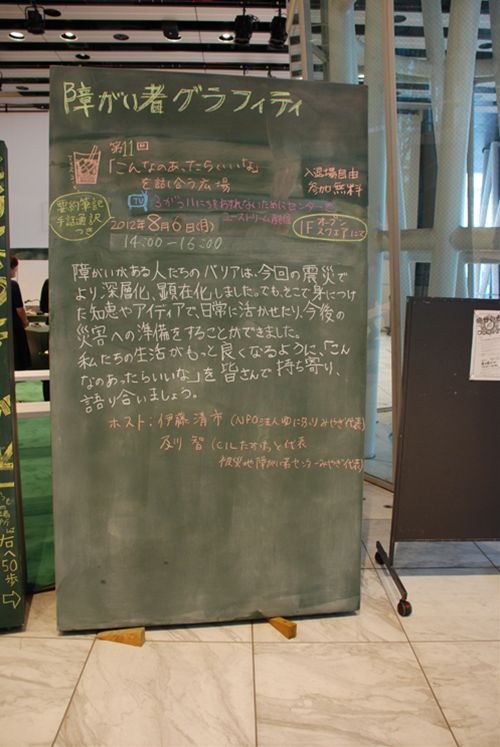 障がい者グラフィティ
第11回
「こんなのあったらいいな」
を話し合う広場
入退場自由
参加無料
要約筆記
手話通訳
つき
TV
3がつ11にちをわすれないためにセンターで
ユーストリーム配信
2012年8月6日(月)
14:00-16:00
1F オープン
スクエアにて
障がいがある人たちのバリアは、今回の震災で
より深層化、顕在化しました。でも、そこで身につけ
た知恵やアイディアで、日常に活かせたり、今後の
災害への準備をすることができました。
私たちの生活がもっと良くなるように、「こん
なのあったらいいな」を皆さんで持ち寄り、
語り合いましょう。
ホスト:伊藤清市(NPO法人ゆにふりみやぎ代表)
及川 智(CILたすけっと代表
被災地障がい者センターみやぎ代表)
右へ50歩